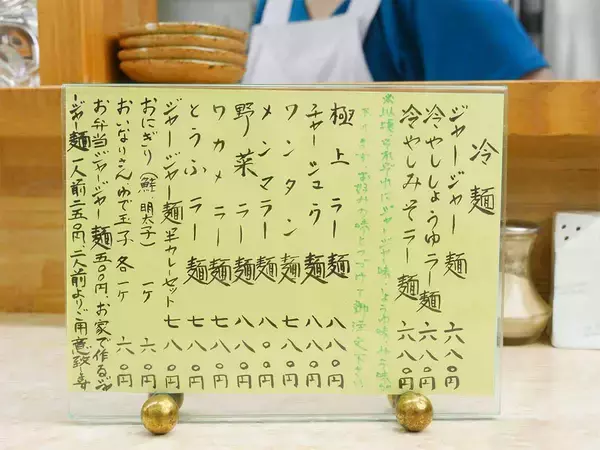 冷麺
ジャージャー麺 六八〇円
冷やししょうゆラー麺 六八〇円
冷やしみそラー麺 六八〇円
ジャージャー味、しょうゆ味、みそ味
お好みの味 御注文下さい
極上ラー麺 八八〇円
チャーシュウ麺 八八〇円
ワンタン麺 七八〇円
メンマラー麺
野菜ラー麺 八八〇円
ワカメラー麺 七八〇円
とうふラー麺 七八〇円
ジャージャー麺半カレーセット 七八〇円
おにぎり(鮭 明太子) 一ケ 六〇円
おいなりさんゆで玉子 各一ケ 六〇円
お弁当ジャージャー麺五〇〇円、お家で作るジャ
ージャー麺 一人前二五〇円、二人前よりご用意致します